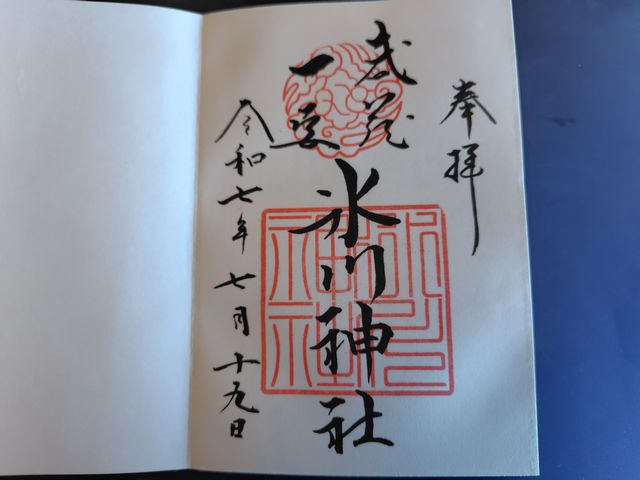 奉拝
武蔵
一宮
氷川神社
令和七年七月十九日
氷川
神社